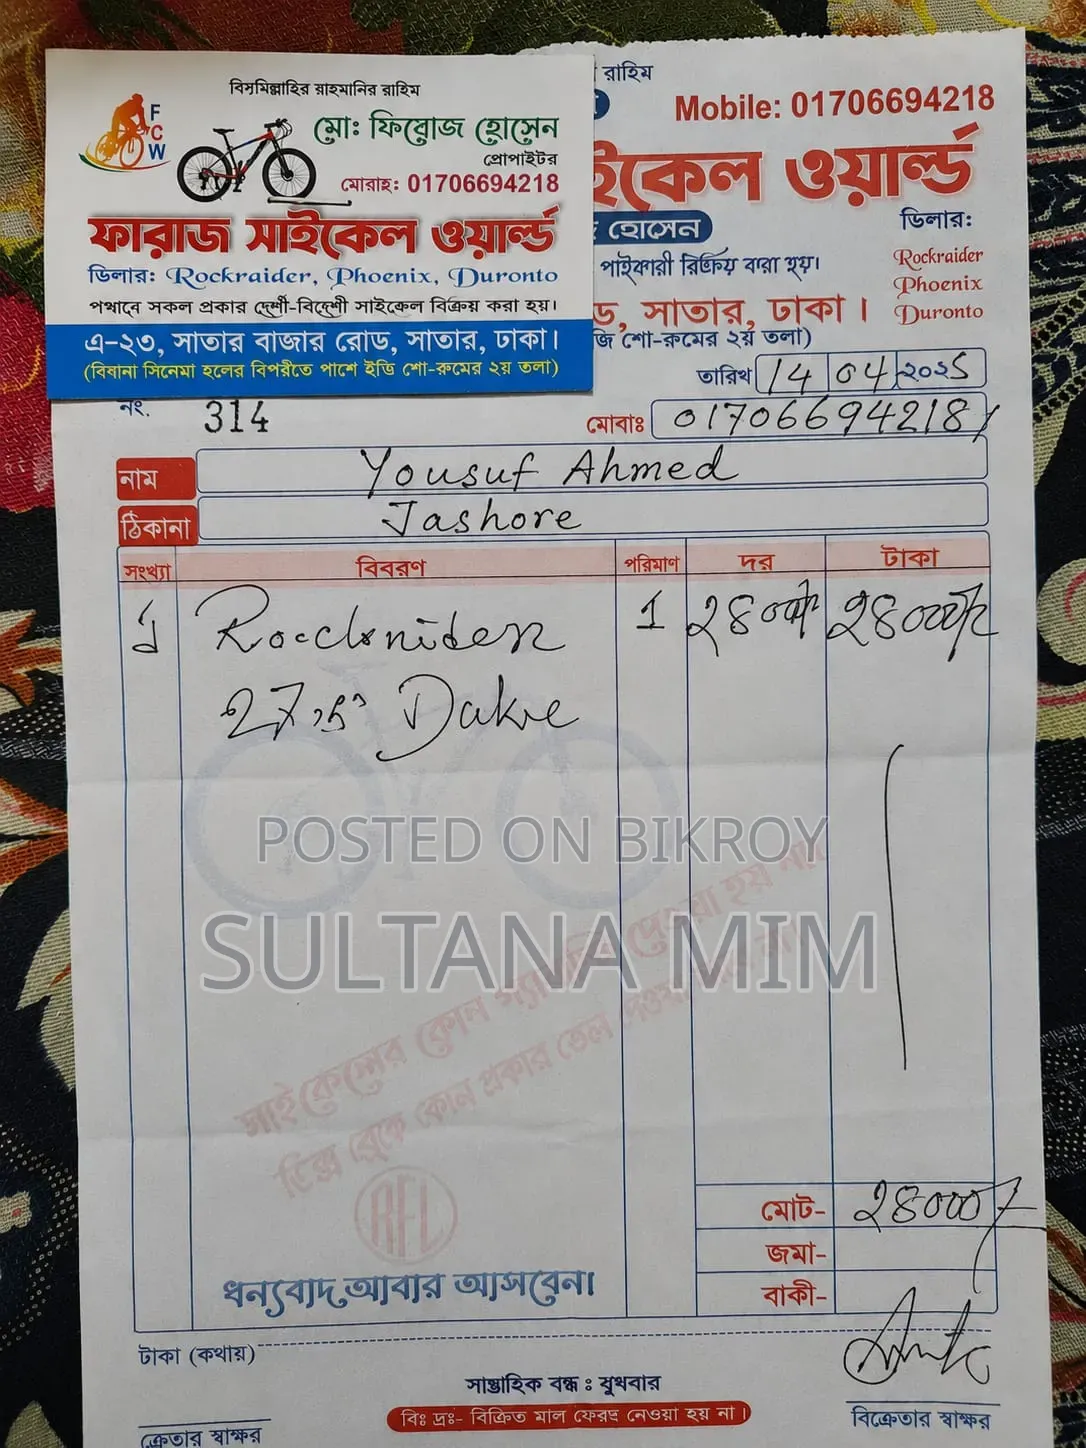 বিসমিল্লাহির রাহমানির রাহিম
FCW
মোঃ ফিরোজ হোসেন
প্রোপাইটর
মোবাঃ 01706694218
ফারাজ সাইকেল ওয়ার্ল্ড
ডিলার: Rockraider, Phoenix, Duronto
এখানে সকল প্রকার দেশী-বিদেশী সাইকেল বিক্রয় করা হয়।
এ-২৩, সাভার বাজার রোড, সাভার, ঢাকা।
(বিষানা সিনেমা হলের বিপরীতে পাশে ইজি শো-রুমের ২য় তলা)
রাহিম
Mobile: 01706694218
ইকেল ওয়ার্ল্ড
হোসেন
ডিলার:
পাইকারী বিক্রয় করা হয়।
Rockraider
Phoenix
Duronto
ড, সাভার, ঢাকা।
জি শো-রুমের ২য় তলা)
তারিখ 14 04 ২০২৫
নং. 314
মোবাঃ 01706694218/
নাম Yousuf Ahmed
ঠিকানা Jashore
সংখ্যা বিবরণ পরিমাণ দর টাকা
Rockrider 1 ২৪০০০/- ২৪০০০/-
27.5"
POSTED ON BIKROY
SULTANA MIM
সাইকেলের কোন গ্যারান্টি দেওয়া হয় না।
ডিস্ক ব্রেকে কোন প্রকার তেল দেওয়া যাবে না।
RFL
মোট- ২৪০০০/-
জমা-
বাকী-
ধন্যবাদ, আবার আসবেন।
টাকা (কথায়)
সাপ্তাহিক বন্ধ : বুধবার
বিঃ দ্রঃ- বিক্রিত মাল ফেরৎ নেওয়া হয় না।
ক্রেতার স্বাক্ষর
বিক্রেতার স্বাক্ষর